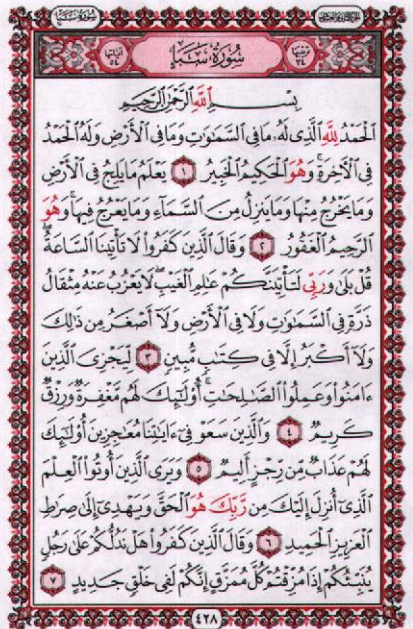 سُورَةُ سَبَإٍ
سُورَةُ سَبَإٍ
بِسْمِ اللَّهِ الرَّحْمَٰنِ الرَّحِيمِ
الْحَمْدُ لِلَّهِ الَّذِي لَهُ مَا فِي السَّمَٰوَٰتِ وَمَا فِي الْأَرْضِ وَلَهُ الْحَمْدُ
فِي الْآخِرَةِ ۚ وَهُوَ الْحَكِيمُ الْخَبِيرُ ١ يَعْلَمُ مَا يَلِجُ فِي الْأَرْضِ
وَمَا يَخْرُجُ مِنْهَا وَمَا يَنزِلُ مِنَ السَّمَاءِ وَمَا يَعْرُجُ فِيهَا ۚ وَهُوَ
الرَّحِيمُ الْغَفُورُ ٢ وَقَالَ الَّذِينَ كَفَرُوا لَا تَأْتِينَا السَّاعَةُ ۖ
قُلْ بَلَىٰ وَرَبِّي لَتَأْتِيَنَّكُمْ عَٰلِمِ الْغَيْبِ ۖ لَا يَعْزُبُ عَنْهُ مِثْقَالُ
ذَرَّةٍ فِي السَّمَٰوَٰتِ وَلَا فِي الْأَرْضِ وَلَا أَصْغَرُ مِن ذَٰلِكَ
وَلَا أَكْبَرُ إِلَّا فِي كِتَٰبٍ مُّبِينٍ ٣ لِّيَجْزِيَ الَّذِينَ
ءَامَنُوا وَعَمِلُوا الصَّٰلِحَٰتِ ۚ أُولَٰئِكَ لَهُم مَّغْفِرَةٌ وَرِزْقٌ
كَرِيمٌ ٤ وَالَّذِينَ سَعَوْ فِي ءَايَٰتِنَا مُعَٰجِزِينَ أُولَٰئِكَ
لَهُمْ عَذَابٌ مِّن رِّجْزٍ أَلِيمٌ ٥ وَيَرَى الَّذِينَ أُوتُوا الْعِلْمَ
الَّذِي أُنزِلَ إِلَيْكَ مِن رَّبِّكَ هُوَ الْحَقَّ وَيَهْدِي إِلَىٰ صِرَٰطِ
الْعَزِيزِ الْحَمِيدِ ٦ وَقَالَ الَّذِينَ كَفَرُوا هَلْ نَدُلُّكُمْ عَلَىٰ رَجُلٍ
يُنَبِّئُكُمْ إِذَا مُزِّقْتُمْ كُلَّ مُمَزَّقٍ إِنَّكُمْ لَفِي خَلْقٍ جَدِيدٍ ٧
٤٢٨